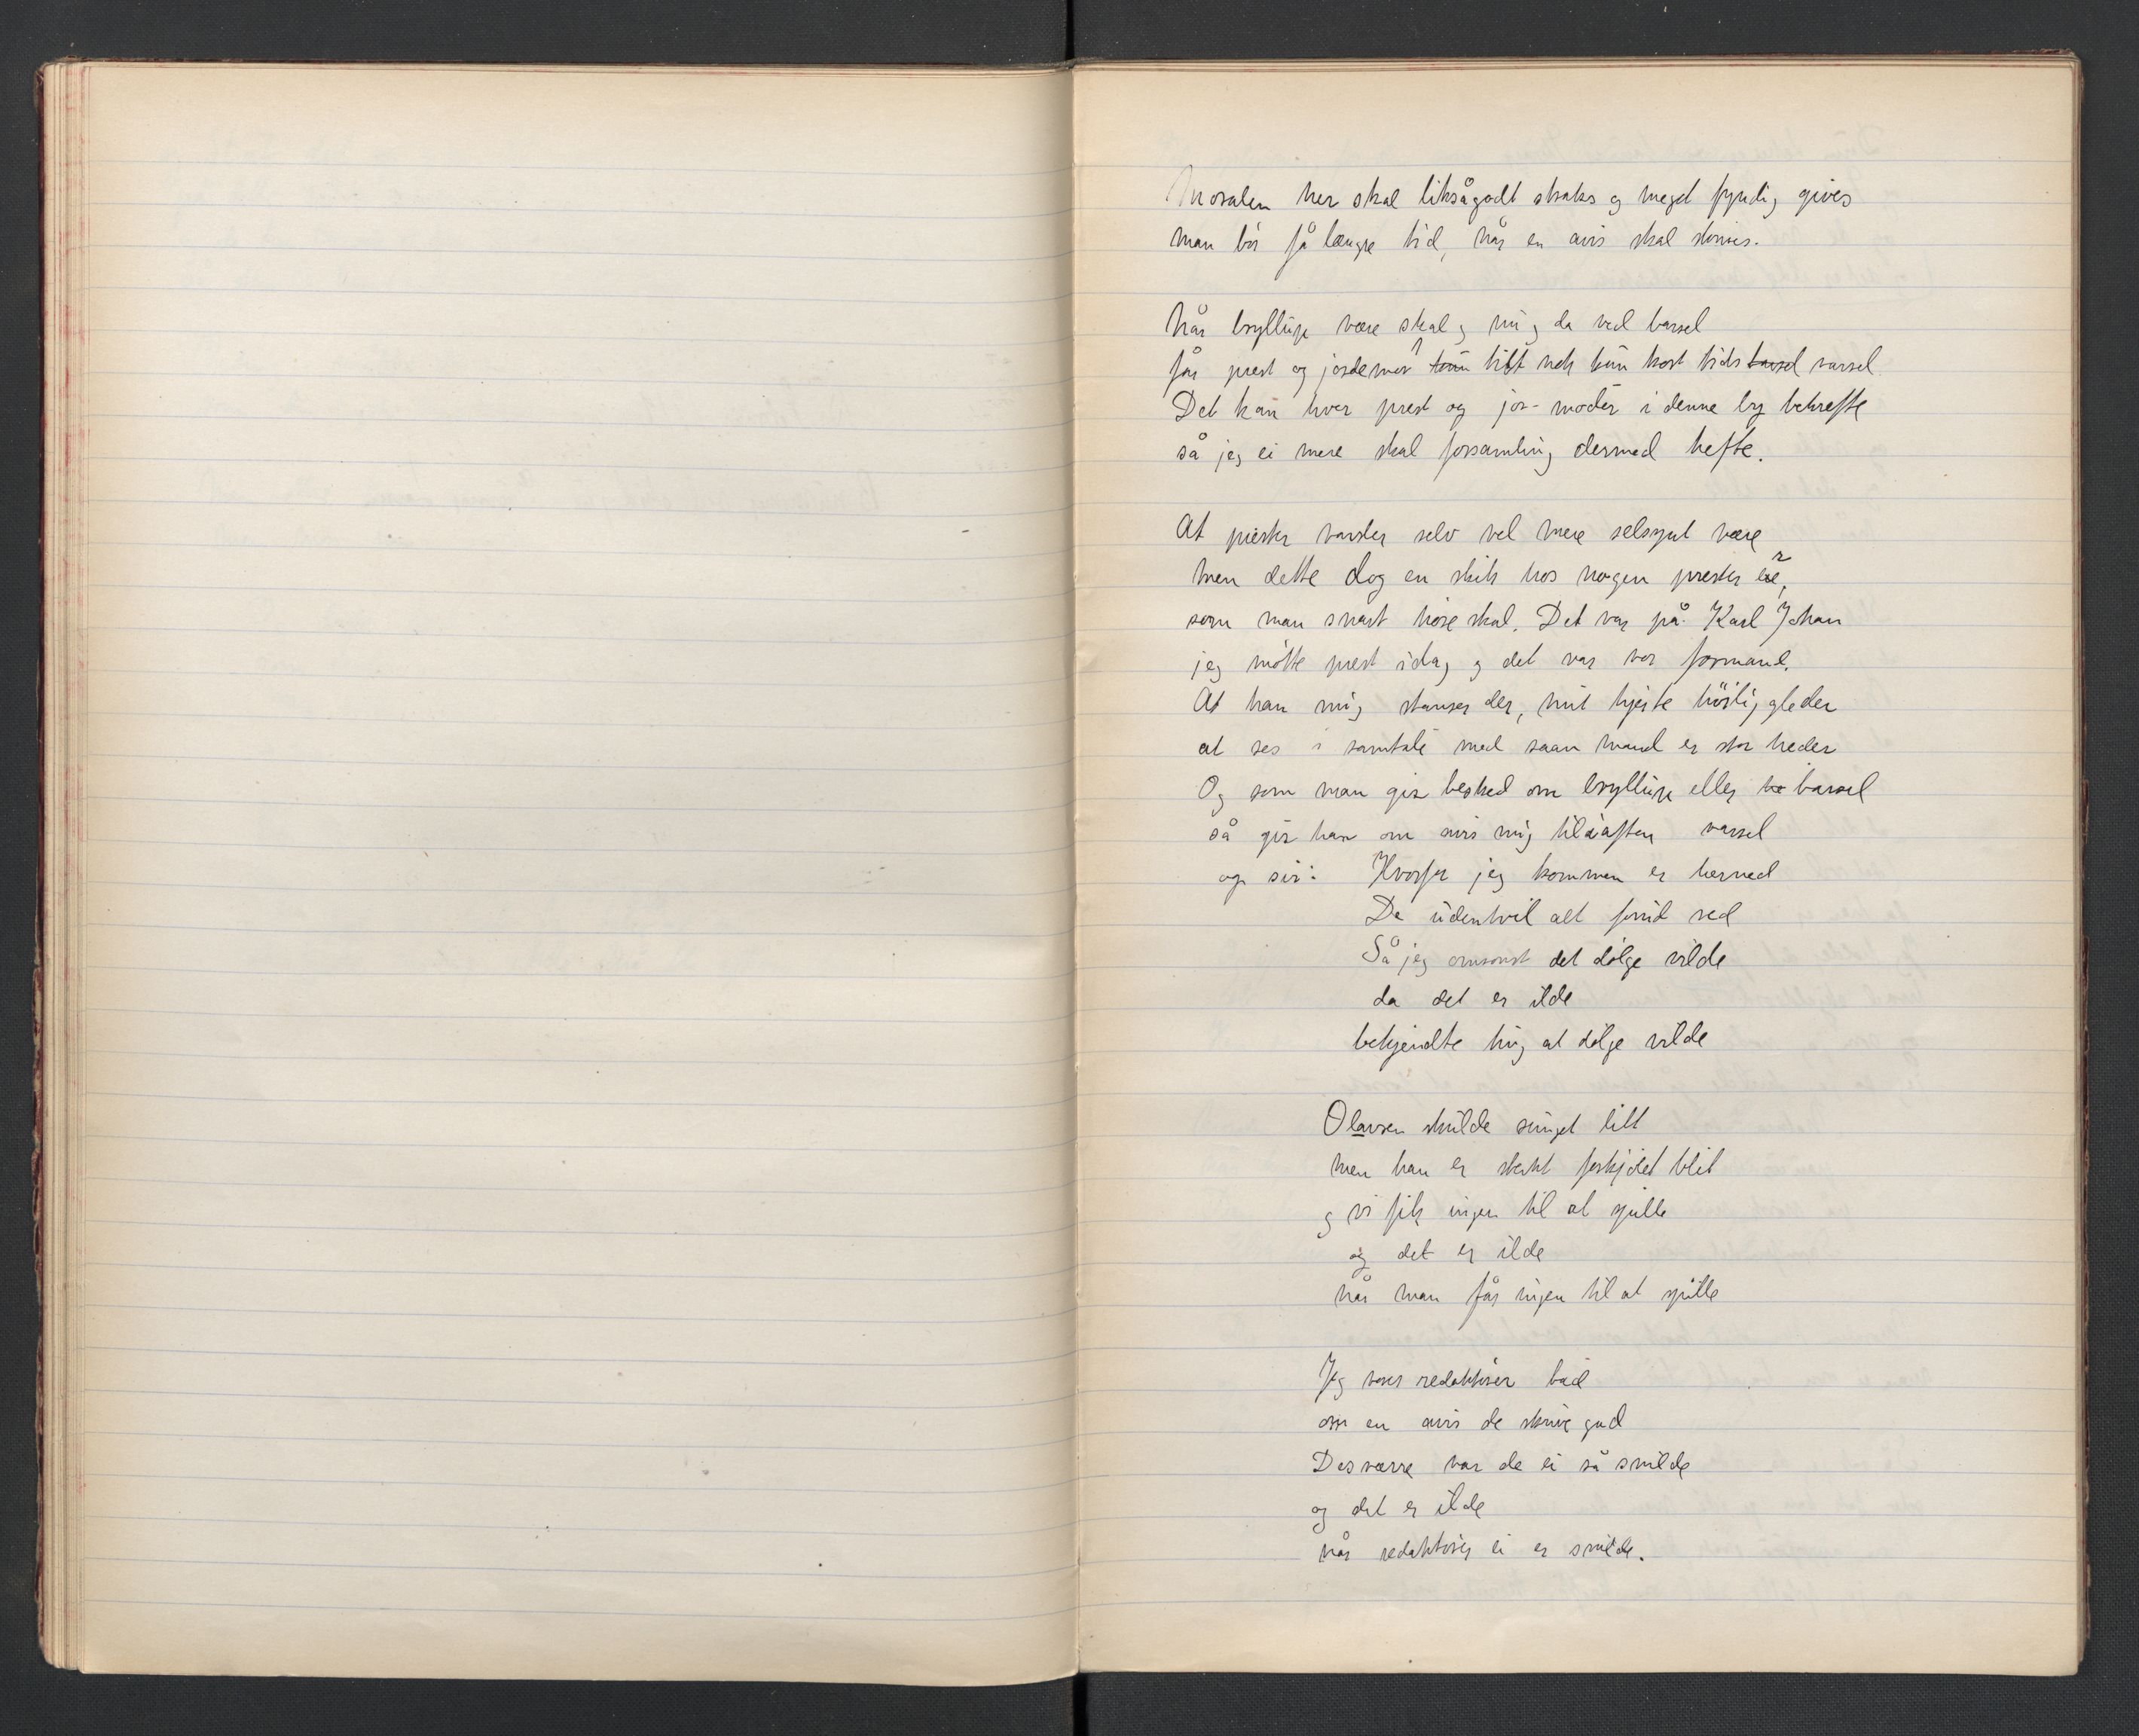 Moralen her skal liksågodt straks og meget fyndig gives
man bør få længre tid, når en avis skal skrives.
Når bryllup være skal og nu og da ved barsel
får prest og jordemor litt nok kun kort tids varsel
Det kan hver prest og jor-moder i denne by bekrefte
så jeg ei mere skal forsamling dermed hefte.
At prester varsler selv vel mere selsynt være
men dette dog en skik hos nogen prester er,
som man snart høre skal. Det var på Karl Johan
jeg møtte prest idag og det var vor formand.
At han mig stanser der, mit hjerte hørlig gleder
at ses i samtale med saan mand er stor heder
Og som man gir besked om bryllup eller barsel
så gir han om avis mig til iaften varsel
og sir: Hvorfor jeg kommen er herned
De udentvil alt forud ved
Så jeg omsonst det dølge vilde
da det er ilde
bekjendte ting at dølge vilde
Olavsen skulde sunget litt
men han er sterkt forkjølet blit
og vi fik ingen til at spille
og det er ilde
når man får ingen til at spille
Jeg vores redaktører bad
om en avis de skrive gad
Desværre var de ei så snilde
og det er ilde
når redaktører ei er snilde.